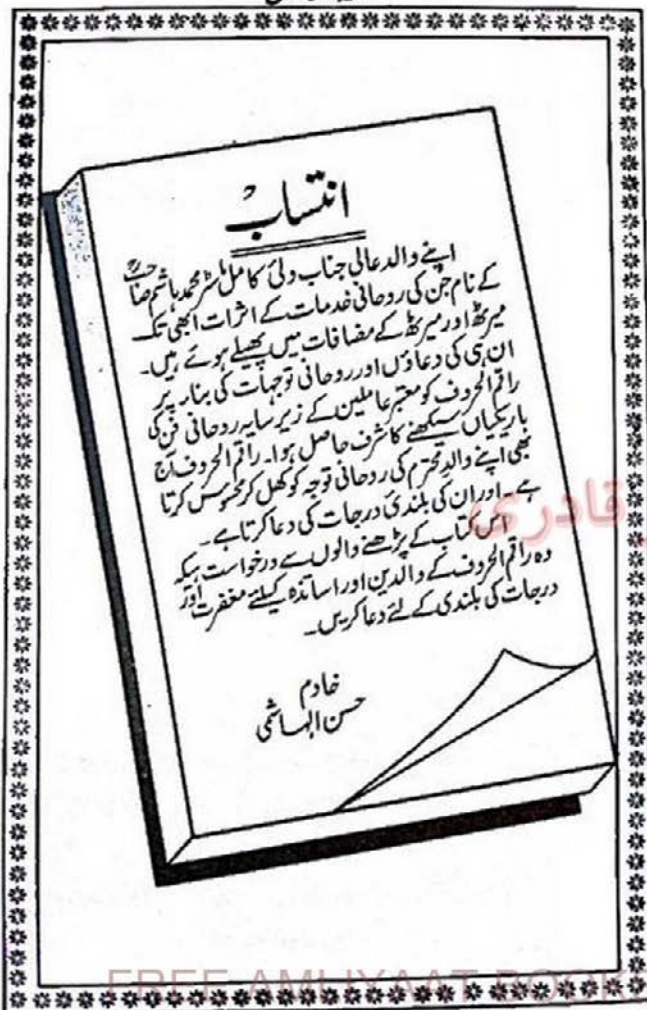 انتساب
اپنے والد عالی جناب ولیٔ کامل ماسٹر محمد ہاشم صاحبؒ
کے نام جن کی روحانی خدمات کے اثرات ابھی تک
میرٹھ اور میرٹھ کے مضافات میں پھیلے ہوئے ہیں۔
ان ہی کی دعاؤں اور روحانی توجہات کی بناء پر
راقم الحروف کو معتبر عاملین کے زیر سایہ روحانی فن کی
باریکیاں سیکھنے کا شرف حاصل ہوا۔ راقم الحروف آج
بھی اپنے والد محترم کی روحانی توجہ کو کھل کر محسوس کرتا
ہے۔ اور ان کی بلندیٔ درجات کی دعا کرتا ہے۔
اس کتاب کے پڑھنے والوں سے درخواست ہیکہ
وہ راقم الحروف کے والدین اور اساتذہ کیلئے مغفرت اور
درجات کی بلندی کے لئے دعا کریں۔
خادم
حسن الہاشمی
قادری
FREE AMLIYAAT BOOKS